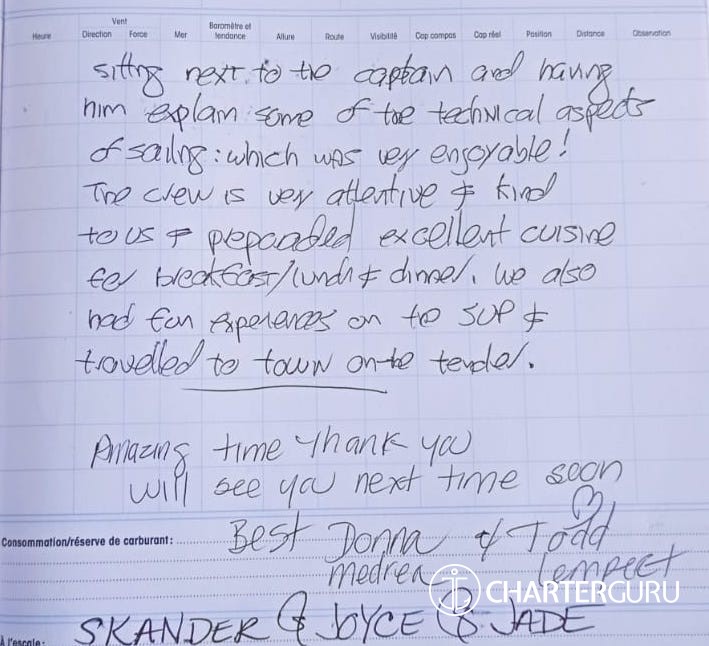 Vent
Heure Direction Force Mer Baromètre et tendance Allure Route Visibilité Cap compas Cap réel Position Distance Observation
sitting next to the captain and having
him explain some of the technical aspects
of sailing: which was very enjoyable!
The crew is very attentive & kind
to us & prepaaded excellent cuisine
for breakfast/lunch & dinner. We also
had fun experiences on the SUP &
travelled to town on the tender.
Amazing time thank you
will see you next time soon
Consommation/réserve de carburant :
Best Donna & Todd
medrea Lempect
CHARTERGURU
À l'escale :
SKANDER & JOYCE & JADE